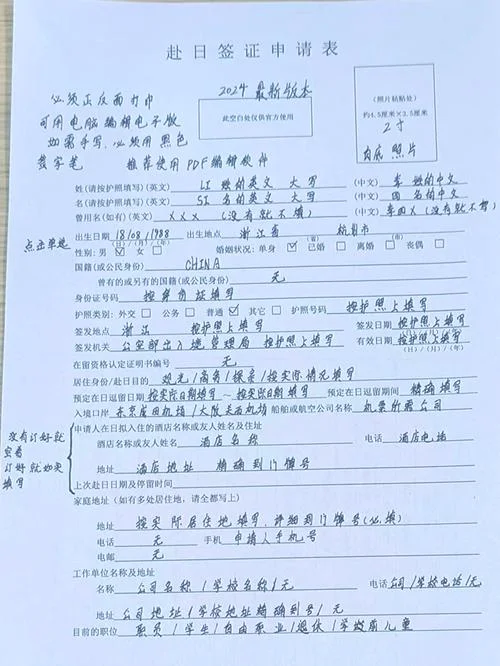 赴日签证申请表
必须正反面打印
可用电脑编辑电子版
如需手写,必须用黑色
签字笔 推荐使用PDF编辑软件
2024最新版本
此空白处仅供官方使用
(照片粘贴处)
约4.5厘米×3.5厘米
2寸
白底照片
姓(请按护照填写)(英文) LI 姓的英文 大写 (中文) 李 姓的中文
名(请按护照填写)(英文) SI 名的英文 大写 (中文) 四 名的中文
曾用名(如有)(英文) XXX (没有就不填) (中文) 李四X (没有就不写)
点击单选
出生日期 18/08/1988 出生地点 浙江省 杭州市
(日)/(月)/(年) (省) (市)
性别: 男 ☑ 女 □ 婚姻状况: 单身 ☑ 已婚 □ 离婚 □ 丧偶 □
国籍(或公民身份) CHINA
曾有的或另有的国籍(或公民身份) 无
身份证号码 按身份证填写
护照类别: 外交 □ 公务 □ 普通 ☑ 其它 □ 护照号码 按护照上填写
签发地点 浙江 按护照上填写 签发日期 按护照上填写
(日)/(月)/(年)
签发机关 公安部出入境管理局 按护照上填写 有效日期 按护照上填写
(日)/(月)/(年)
在留资格认定证明书编号 无
居住身份/赴日目的 观光/商务/探亲/按实际情况填写
预定在日逗留日期 按实际日期填写 ~ 按实际日期填写 预定在日逗留期间 精确填写
入境口岸 东京成田机场/大阪关西机场 船舶或航空公司名称 机票所需公司
没有订好就
空着
订好就如实
填写
申请人在日拟入住的酒店名称或友人姓名及住址
酒店名称或友人姓名 酒店名称 电话 酒店电话
地址 酒店地址 精确到门牌号
上次赴日日期及停留时间
家庭地址(如有多处居住地,请全都写上)
地址 按实际居住地填写,详细到门牌号(必填)
电话 无 手机 申请人手机号
电邮 无
工作单位名称及地址
名称 公司名称/学校名称/无 电话 公司/学校电话/无
地址 公司地址/学校地址精确到号/无
目前的职位 职员/学生/自由职业/退休/学龄前儿童